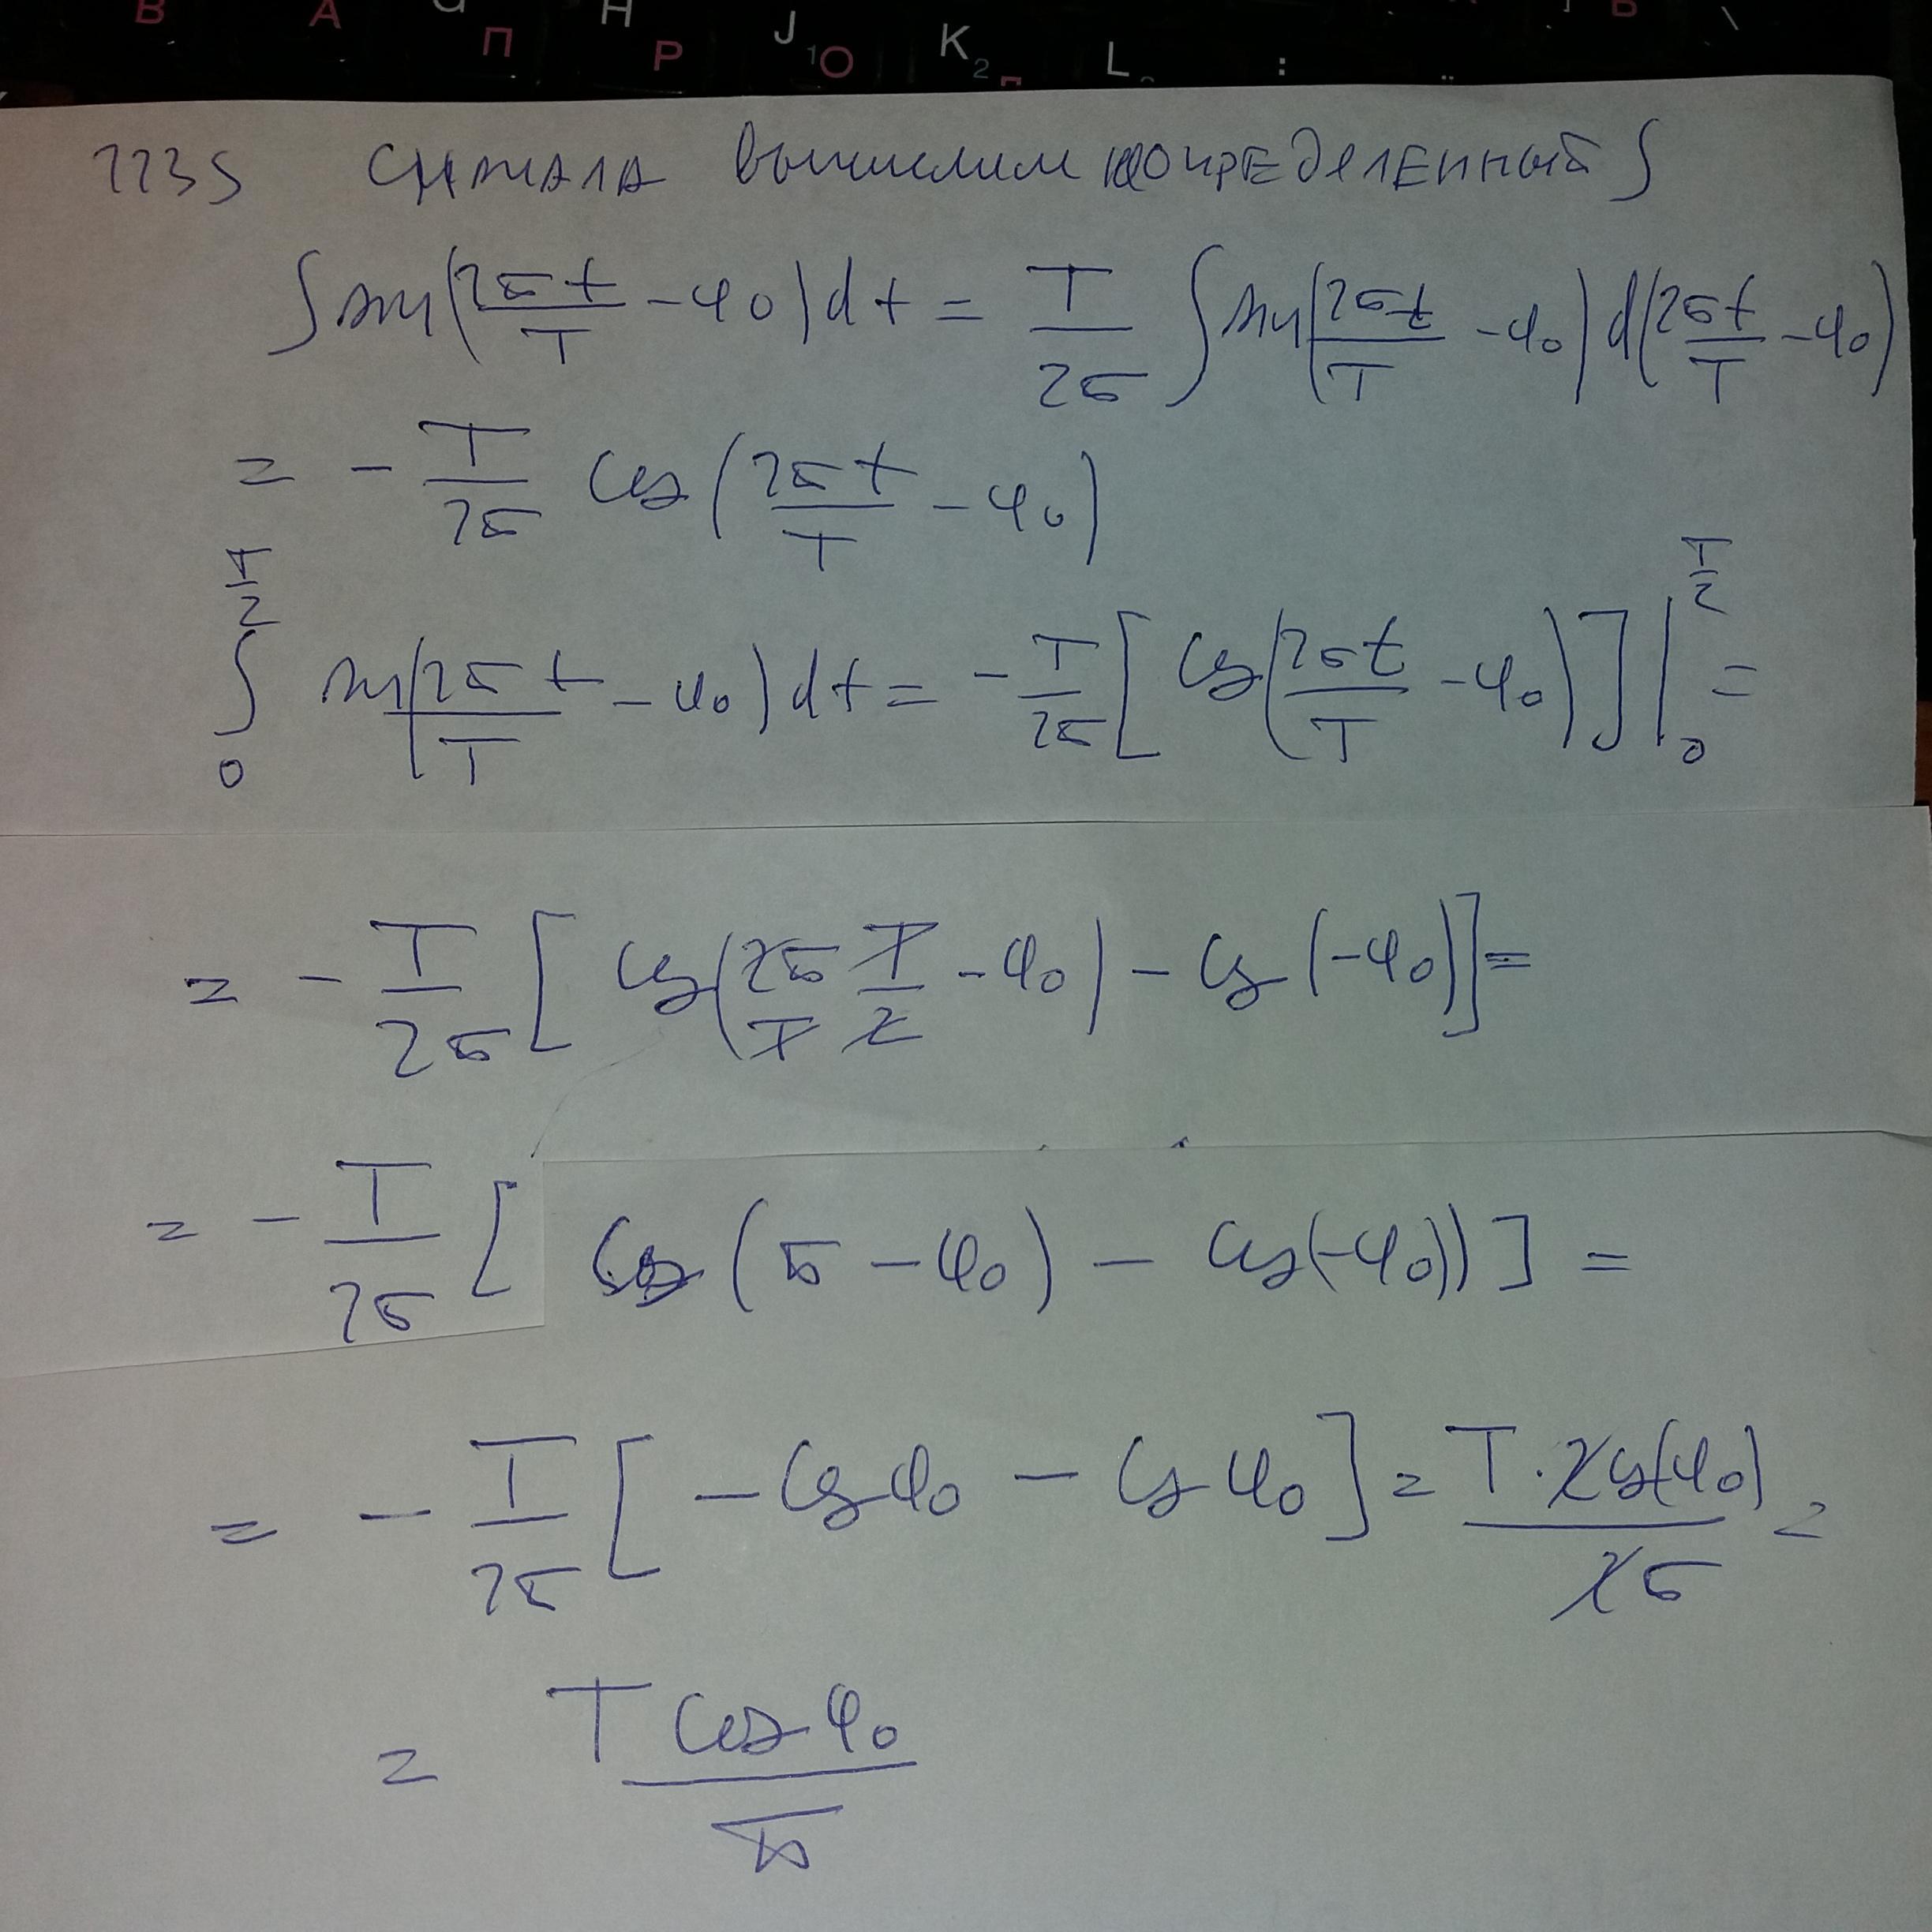 В А G П H Р J 1 О K 2 L : Ь \
2235 сначала вычислим неопределенный ∫
∫ sin(2πt/T - φ0)dt = T/2π ∫ sin(2πt/T - φ0) d(2πt/T - φ0)
= - T/2π cos(2πt/T - φ0)
∫_0^{T/2} sin(2πt/T - φ0)dt = - T/2π [cos(2πt/T - φ0)] |_0^{T/2} =
= - T/2π [cos(2π/T T/2 - φ0) - cos(-φ0)] =
= - T/2π [cos(π - φ0) - cos(-φ0))] =
= - T/2π [- cos φ0 - cos φ0] = T · 2cos(φ0)/2π =
= T cos φ0/π